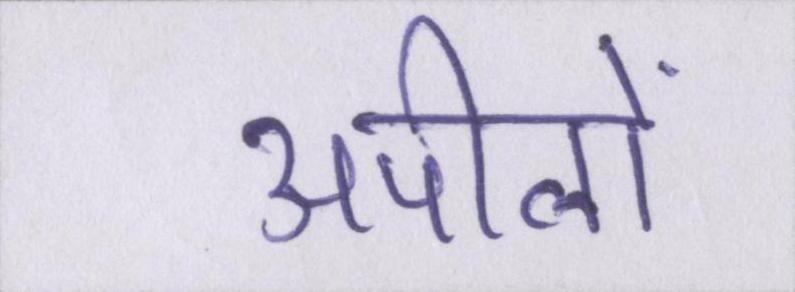 अपीलों